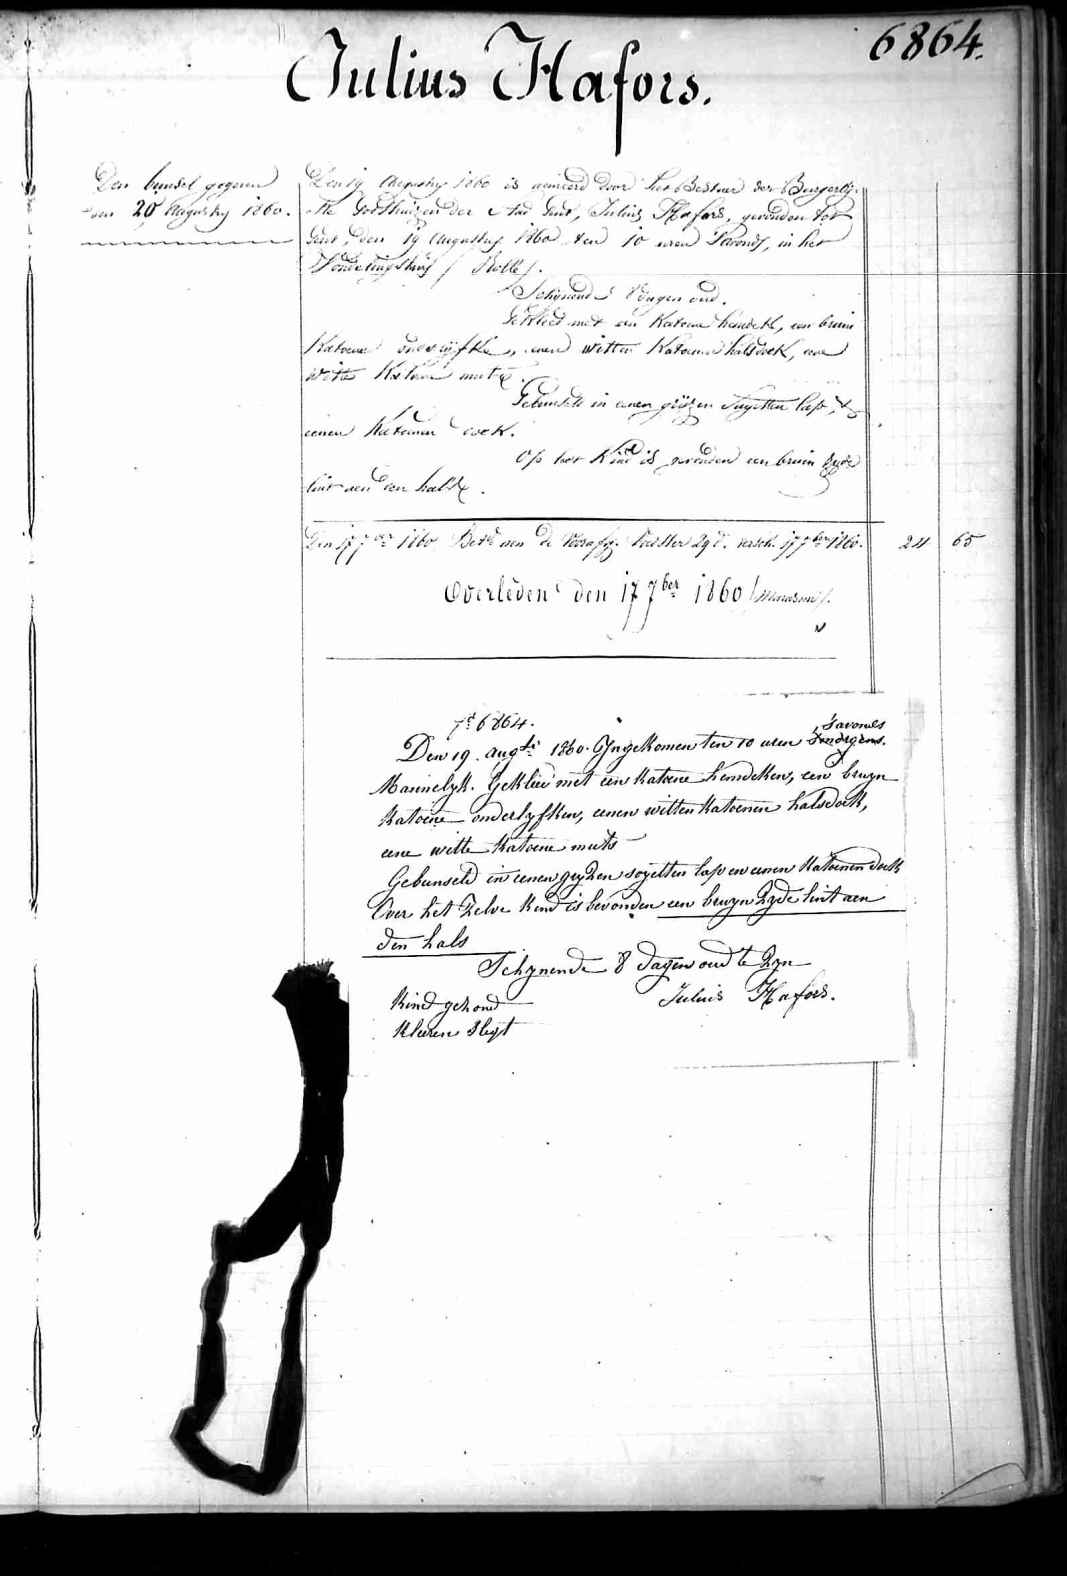 6864.
Julius Hafors.
Den bundel gegeven
den 20 Augusty 1860.
Den 19 Augusty 1860 is aenveerd door het Bestuer der Burgerly-
ke Godshuizen der stad Gent, Julius Hafors, gevonden tot
Gent, den 19 Augustus 1860 ten 10 uren 's avonds, in het
Vondelinghuis (Rolle).
Schynende 8 dagen oud.
Gekleed met een Katoene hemdeke, een bruin
Katoene onderlyfke, eenen witten Katoenen halsdoek, eene
witte Katoene muts.
Gebundelt in eenen gryzen sayetten lap, &
eenen Katoenen doek.
Op het Kind is gevonden een bruin zyde
lint aen den hals.
Den 17 7ber 1860 Bet. aen de Voedster 29 d. versch. 17 7ber 1860. 24 65
Overleden den 17 7ber 1860
6864.
Den 19 augti 1860. Yngekomen ten 10 uren smorgens. savonds
Mannelyk. Gekleed met een katoene hemdeken, een bruyn
katoene onderlyfken, eenen witten katoenen halsdoek,
eene witte katoene muts
Gebunseld in eenen gryzen sayetten lap en eenen katoenen doek
Over het Zelve kind is bevonden een bruyn Zyde lint aen
den hals
Schynende 8 dagen oud te Zyn
Kind gezond Julius Hafors.
Kleeren slegt